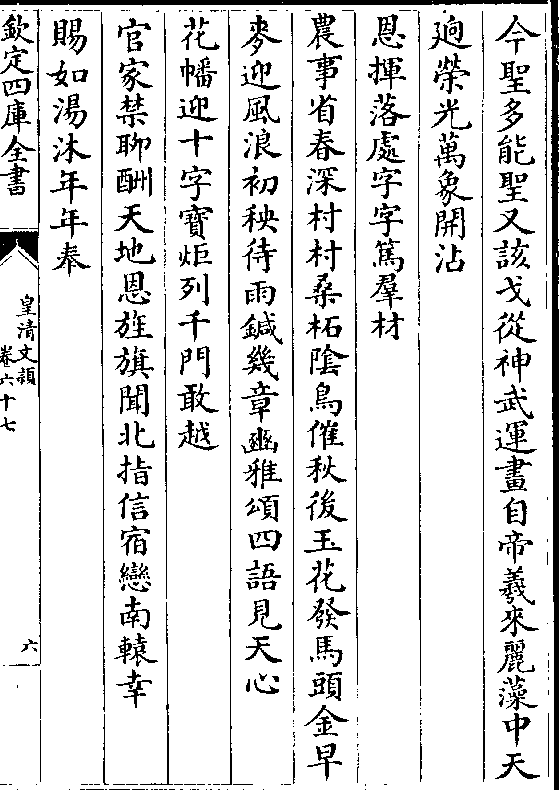 今聖多能聖又該戈從神武運畫自帝羲來麗藻中天
逈榮光萬象開沾
恩揮落處字字篤羣材
農事省春深村村桑柘陰鳥催秋後玉花發馬頭金早
麥迎風浪初秧待雨鍼幾章豳雅頌四語見天心
花幡迎十字寶炬列千門敢越
官家禁聊酬天地恩旌旗聞北指信宿戀南轅幸
賜如湯沐年年奉
欽定四庫全書
皇清文穎
卷六十七
六